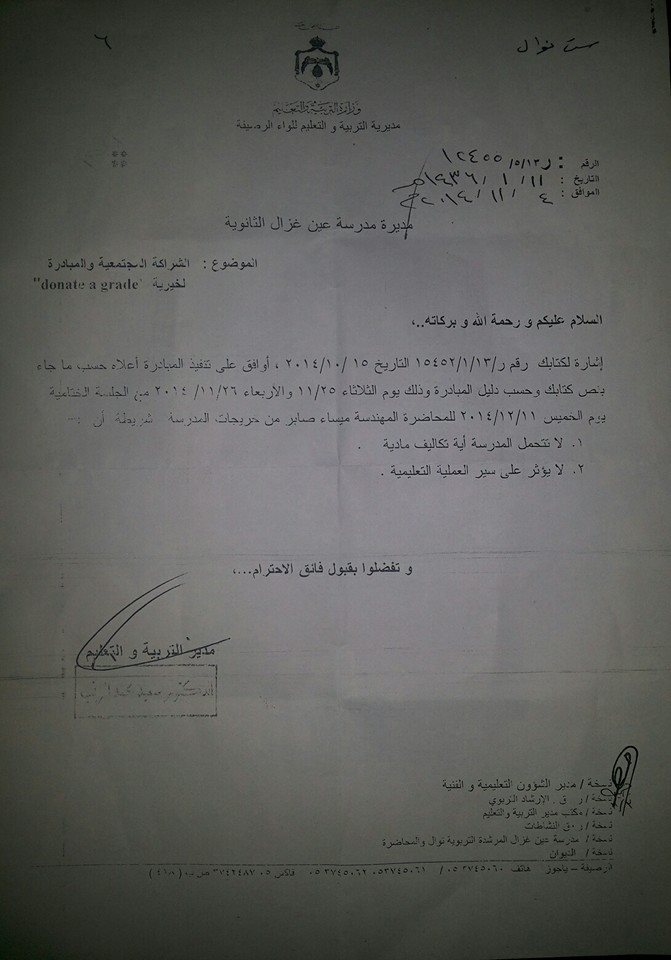 ست نوال
٦
وزارة التربية والتعليم
مديرية التربية و التعليم للواء الرصيفة
الرقم : ر/٥/١٣/١٢٤٥٥
التاريخ : ١١/ ١ /١٤٣٦هـ
الموافق : ٤ /١١/ ٢٠١٤
مديرة مدرسة عين غزال الثانوية
الموضوع : الشراكة المجتمعية والمبادرة
لخيرية "donate a grade"
السلام عليكم و رحمة الله و بركاته..،
إشارة لكتابك رقم ر/١٥٤٥٢/١/١٣ التاريخ ١٥ /٢٠١٤/١٠ ، أوافق على تنفيذ المبادرة أعلاه حسب ما جاء
بنص كتابك وحسب دليل المبادرة وذلك يوم الثلاثاء ١١/٢٥ والأربعاء ٢٠١٤/ ١١/٢٦ من الجلسة الختامية
يوم الخميس ٢٠١٤/١٢/١١ للمحاضرة المهندسة ميساء صابر من خريجات المدرسة شريطة أن :-
١. لا تتحمل المدرسة أية تكاليف مادية .
٢. لا يؤثر على سير العملية التعليمية .
و تفضلوا بقبول فائق الاحترام...،
مدير التربية و التعليم
نسخة / مدير الشؤون التعليمية و الفنية
نسخة / ر . ق . الإرشاد التربوي
نسخة / مكتب مدير التربية والتعليم
نسخة / ر.ق النشاطات
نسخة / مدرسة عين غزال المرشدة التربوية نوال والمحاضرة
نسخة / الديوان
الرصيفة – ياجوز هاتف ٠٥/٣٧٤٥٠٦٠ /٠٥٣٧٤٥٠٦١ ٠٥ ٣٧٤٥٠٦٢ فاكس ٠٥ ٣٧٤٢٤٨٧ ص ب ( ٤١٨ )